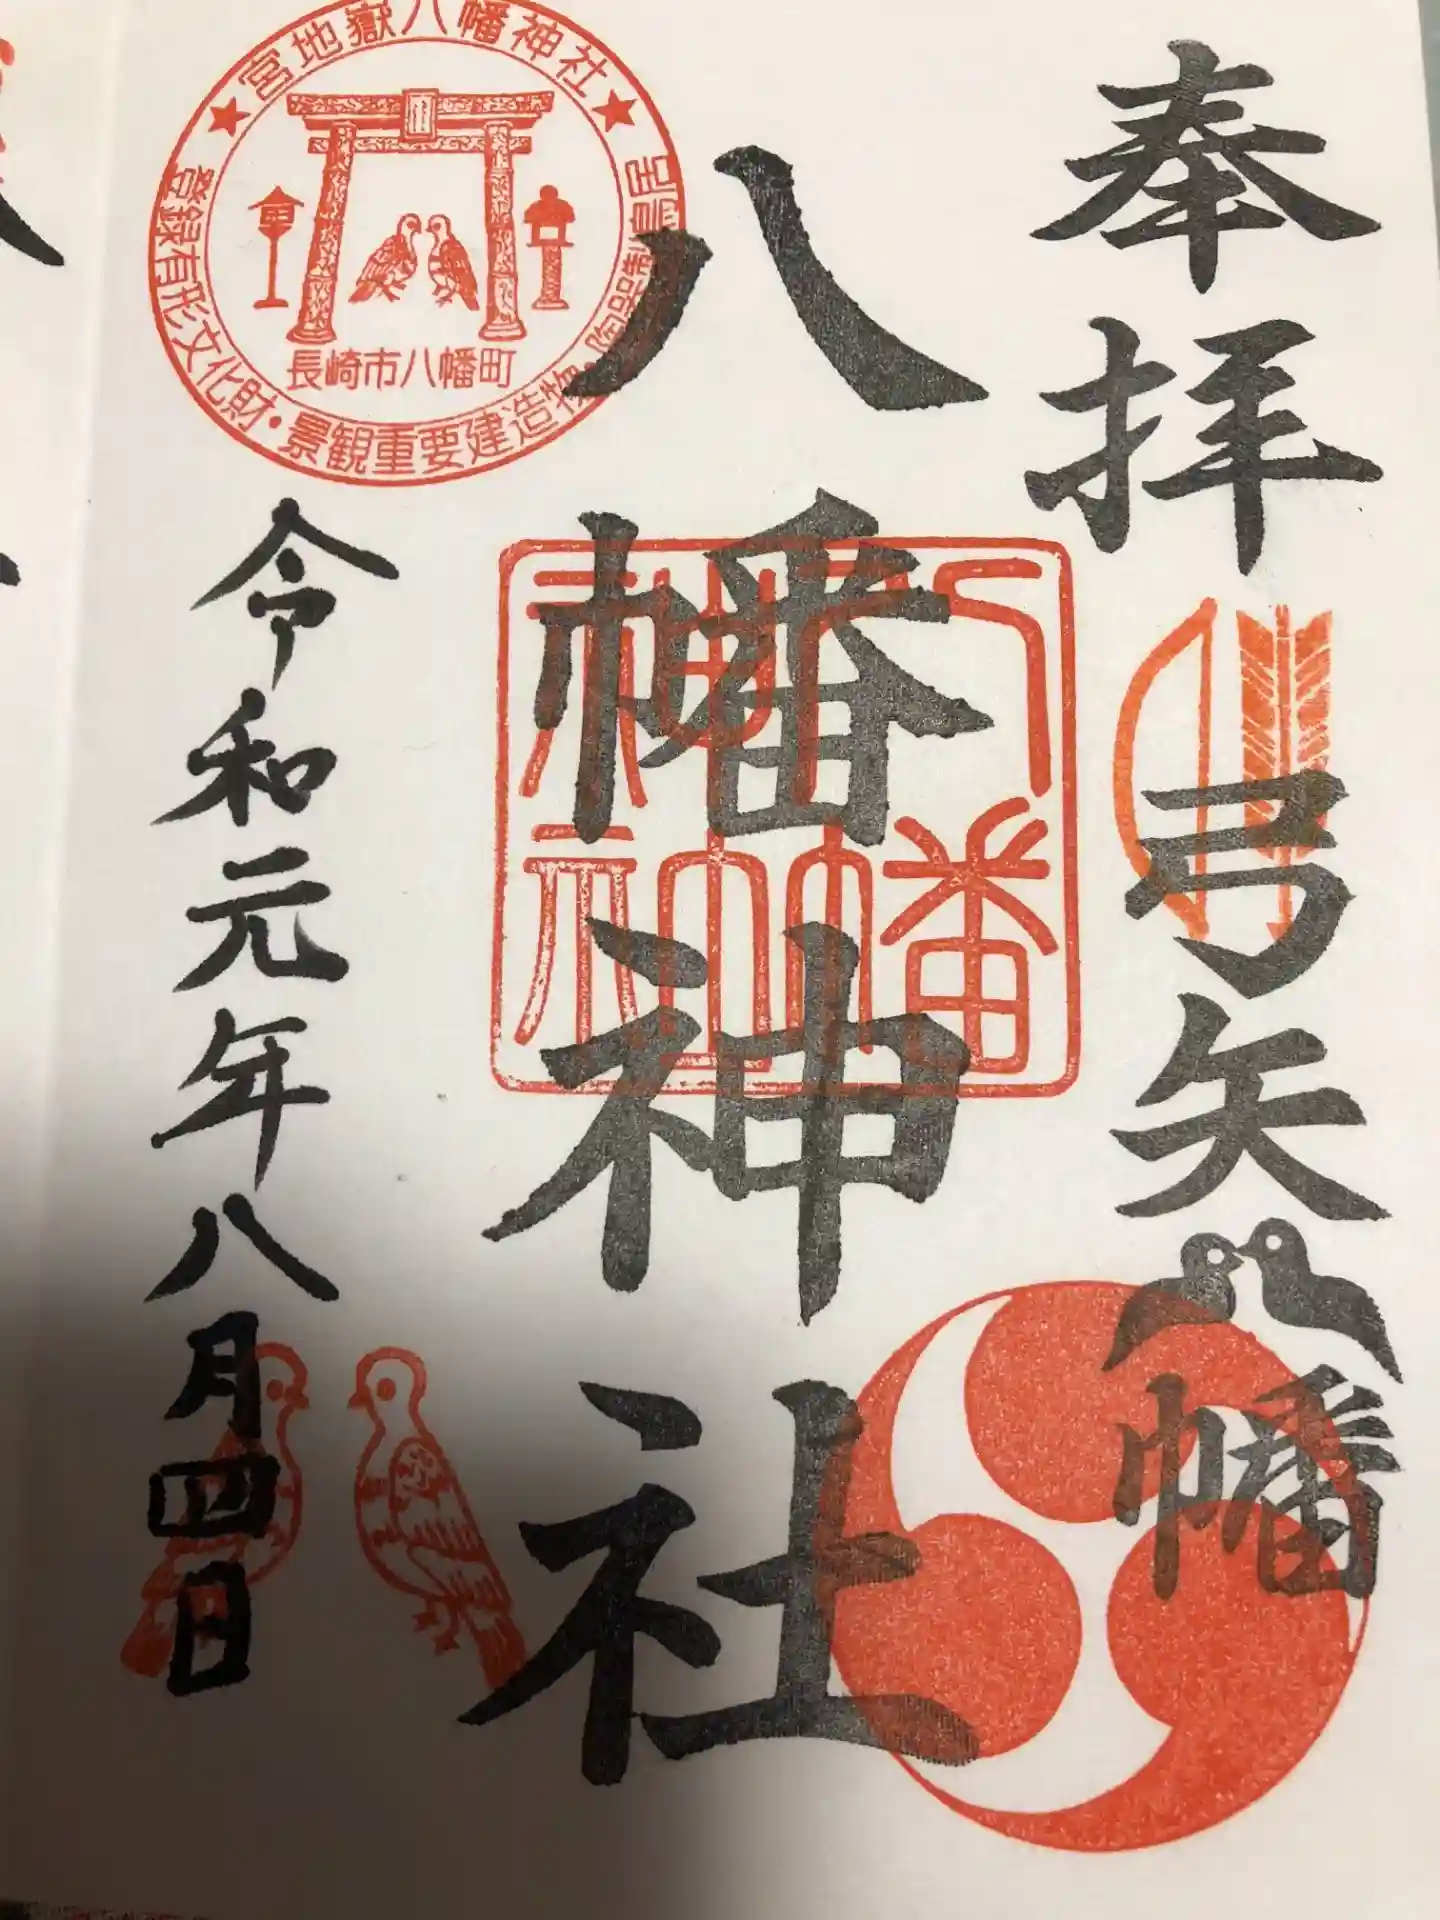 奉拝
弓矢八幡
八幡神社
八幡神社
宮地嶽八幡神社
陶器製鳥居
登録有形文化財・景観重要建造物
長崎市八幡町
令和元年八月四日